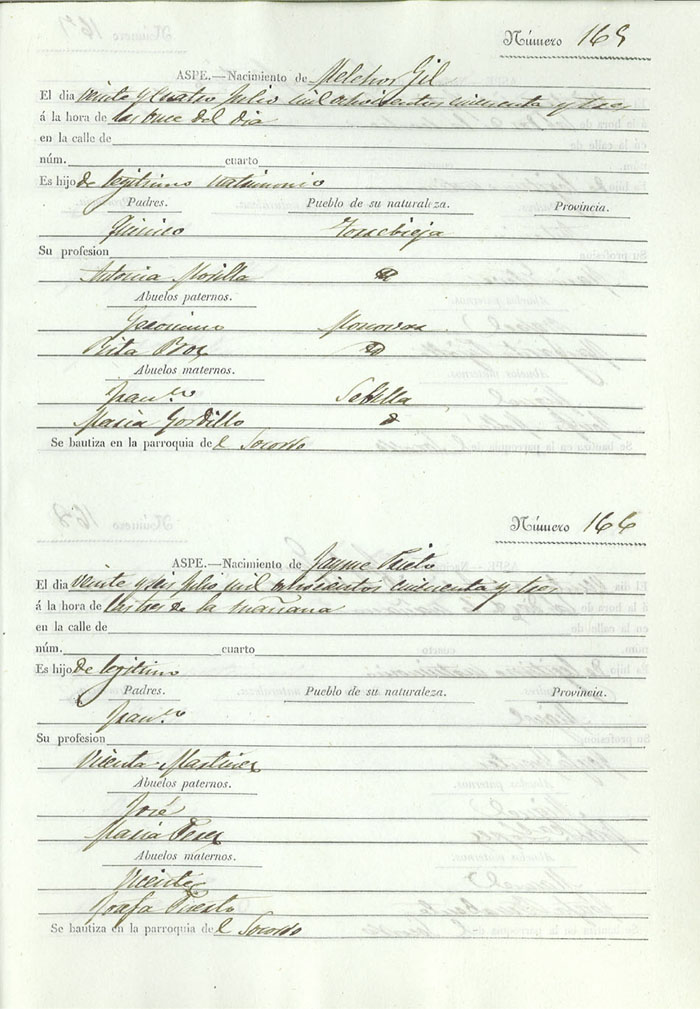 Número 165
ASPE.—Nacimiento de Melchor Gil
El dia veinte y cuatro Julio mil ochocientos cincuenta y tres
á la hora de las once del dia
en la calle de
núm. cuarto
Es hijo de legitimo matrimonio
Padres. Pueblo de su naturaleza. Provincia.
Torrebieja
Su profesion
Antonia Morilla
Abuelos paternos.
Geronimo Monovar
Rita
Abuelos maternos.
Fran.co Sebilla
Maria Gordillo
Se bautiza en la parroquia del Socorro
Número 166
ASPE.—Nacimiento de Jayme Prieto
El dia veinte y seis Julio mil ochocientos cincuenta y tres
á la hora de las tres de la mañana
en la calle de
núm. cuarto
Es hijo de legitimo
Padres. Pueblo de su naturaleza. Provincia.
Fran.co
Su profesion
Vicenta Martinez
Abuelos paternos.
José
Maria Perez
Abuelos maternos.
Vicente
Josefa
Se bautiza en la parroquia del Socorro